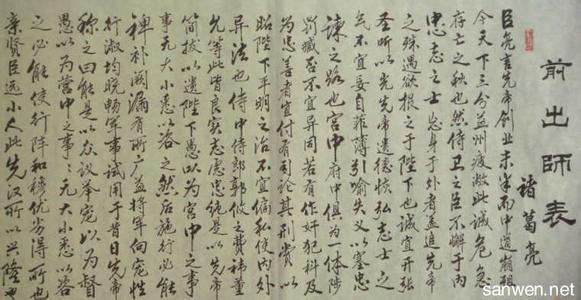 前出師表
諸葛亮
臣亮言先帝創業未半而中道崩殂
今天下三分益州疲敝此誠危急
存亡之秋也然侍衛之臣不懈于内
忠志之士忘身于外者蓋追先帝
之殊遇欲報之于陛下也誠宜開張
圣听以光先帝遺德恢弘志士之
氣不宜妄自菲薄引喻失义以塞忠
諫之路也宫中府中俱為一体陟
罰臧否不宜異同若有作奸犯科及
為忠善者宜付有司論其刑賞以
昭陛下平明之治不宜偏私使内外
异法也侍中侍郎郭攸之費禕董
允等此皆良实志慮忠純是以先帝
简拔以遺陛下愚以為宫中之事
事无大小悉以咨之然后施行必能
裨补阙漏有所广益将军向宠性
行淑均晓暢軍事試用于昔日先帝
称之曰能是以众议举宠以為督
愚以為营中之事事无大小悉以咨
之必能使行阵和穆优劣得所也
亲贤臣远小人此先汉所以兴隆也
sanwen.net